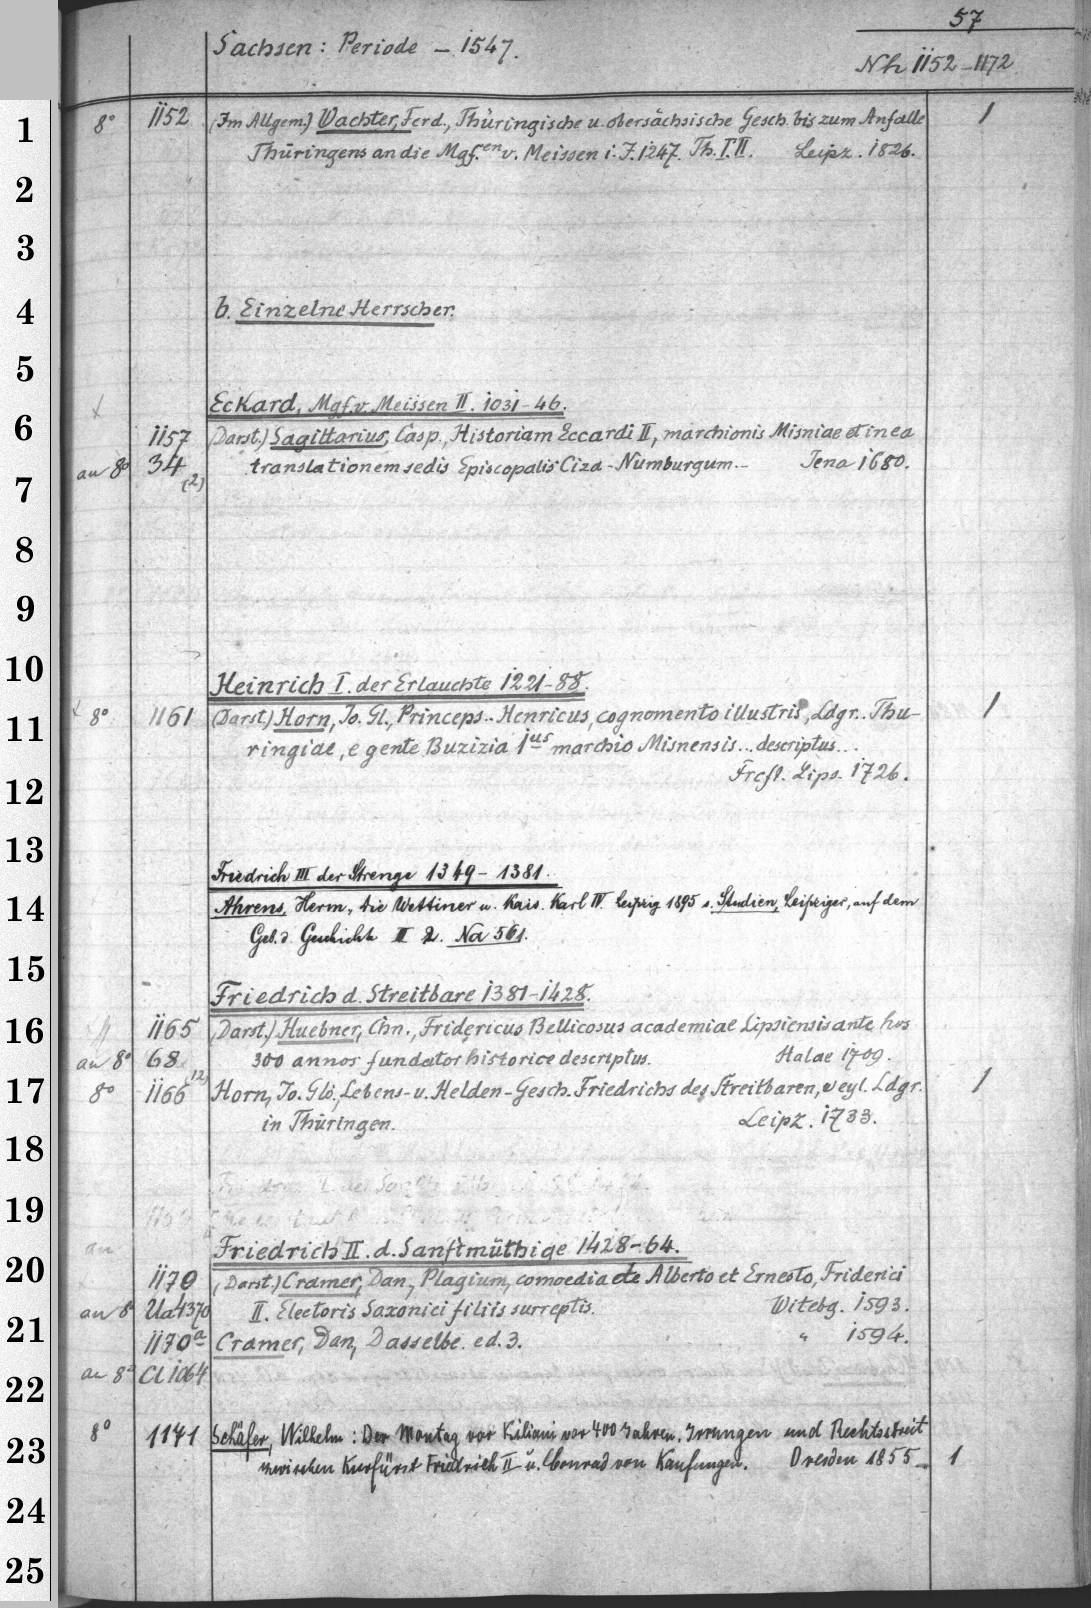 57
Sachsen: Periode – 1547.
Nh 1152–1172
1
8° 1152 (Im Allgem.) Wachter, Ferd., Thüringische u. obersächsische Gesch. bis zum Anfalle 1
Thüringens an die Mgf.en v. Meissen i. J. 1247. Th. I. II. Leipz. 1826.
2
3
4
b. Einzelne Herrscher.
5
Eckard, Mgf. v. Meissen II. 1031–46.
6
1157 (Darst.) Sagittarius, Casp., Historiam Eccardi II, marchionis Misniae et in ea
an 8° 34 (2) translationem sedis Episcopalis Ciza-Numburgum.– Jena 1680.
7
8
9
10
Heinrich I. der Erlauchte 1221–88.
8° 1161 (Darst.) Horn, Jo. Gl., Princeps.. Henricus, cognomento illustris, Ldgr.. Thu- 1
11
ringiae, e gente Buzizia 1us marchio Misnensis... descriptus...
Frcft. Lips. 1726.
12
13
Friedrich III der Strenge 1349–1381.
14
Ahrens, Herm., die Wettiner u. Kais. Karl IV. Leipzig 1895 s. Studien, Leipziger, auf dem
Geb. d. Geschichte II 2. Na 561.
15
Friedrich d. Streitbare 1381–1428.
16
1165 (Darst.) Huebner, Chn., Fridericus Bellicosus academiae Lipsiensis ante hos
an 8° 68 (12) 300 annos fundator historice descriptus. Halae 1709.
17
8° 1166 Horn, Jo. Glo., Lebens- u. Helden-Gesch. Friedrichs des Streitbaren, weyl. Ldgr. 1
in Thüringen. Leipz. 1733.
18
19
an
Friedrich II. d. Sanftmüthige 1428–64.
20
1170 (Darst.) Cramer, Dan., Plagium, comoedia de Alberto et Ernesto, Friderici
an 8° Ua 4370 II. Electoris Saxonici filiis surreptis. Witebg. 1593.
21
1170a Cramer, Dan., Dasselbe. ed. 3. " 1594.
an 8° Cl 1064
22
8° 1171 Schäfer, Wilhelm: Der Montag vor Kiliani vor 400 Jahren. Irrungen und Rechtsstreit
23
zwischen Kurfürst Friedrich II u. Conrad von Kaufungen. Dresden 1855. 1
24
25